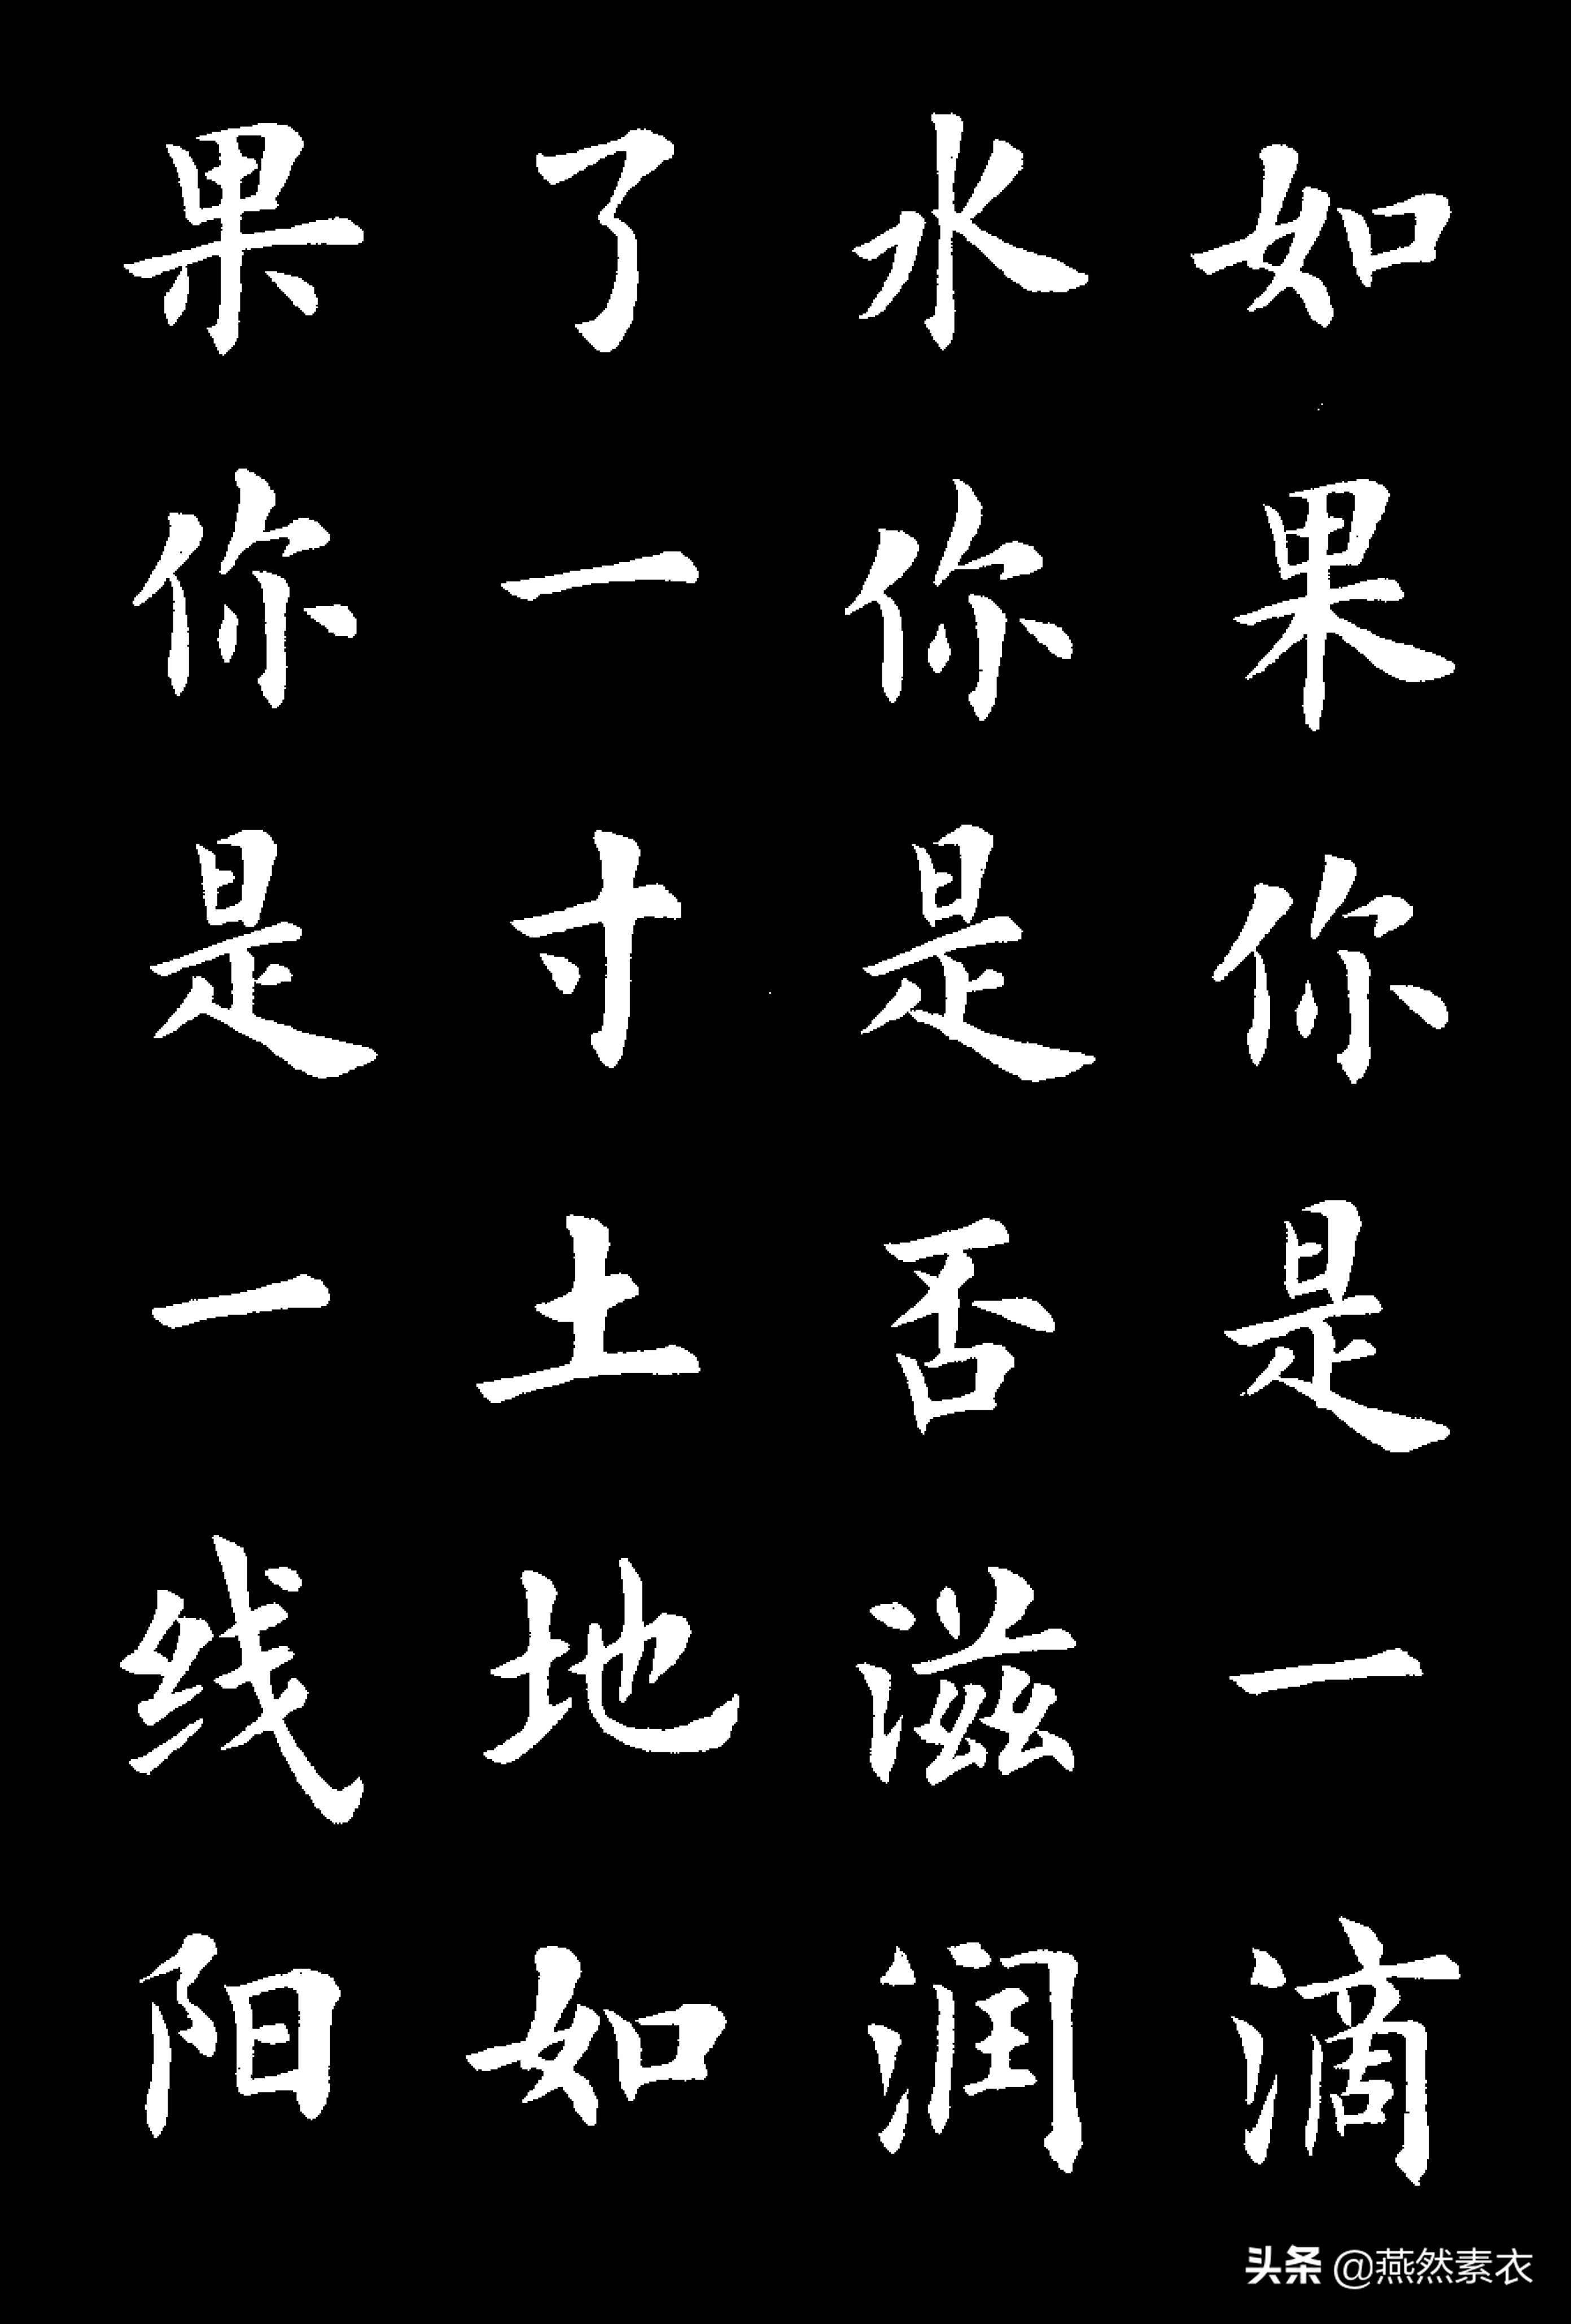 如果你是一滴
水你是否滋润
了一寸土地如
果你是一线阳
头条 @燕然素衣